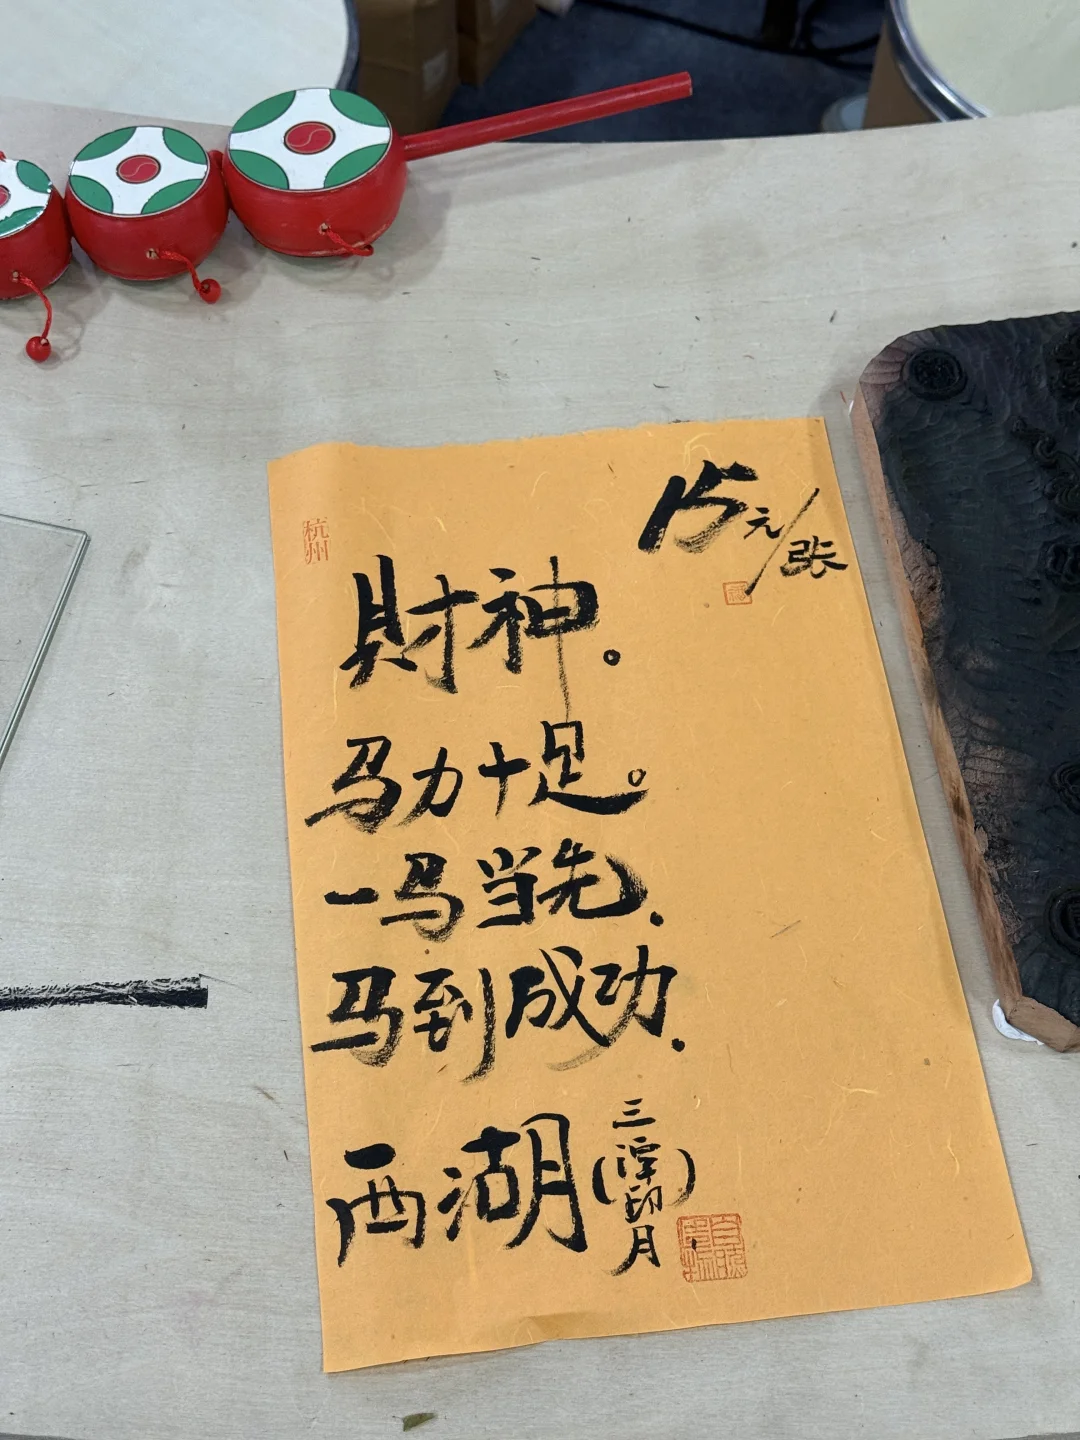 15元/张
杭州
福
財神。
马力十足。
一马当先.
马到成功.
西湖(三潭印月)